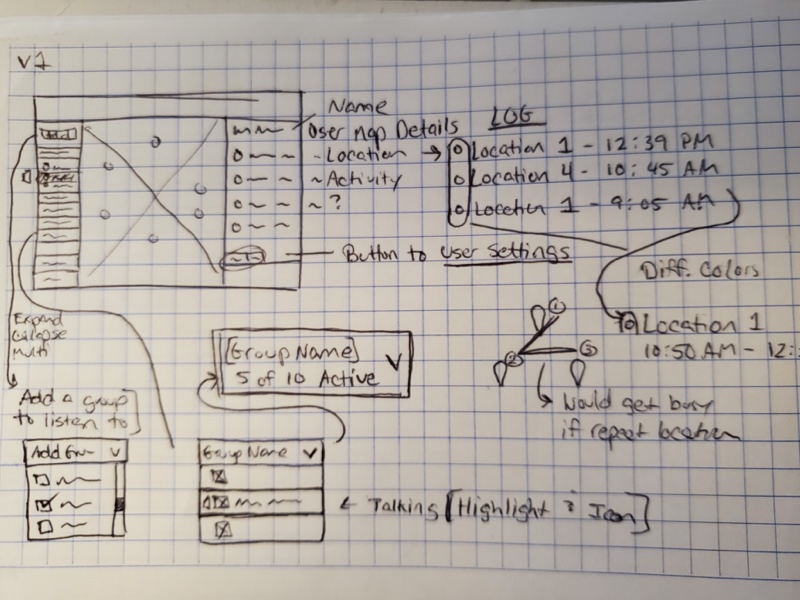 v1
Name
User Map Details
- Location →
~ Activity
~ ?
Button to User Settings
LOG
Location 1 - 12:39 PM
Location 4 - 10:45 AM
Location 1 - 9:05 AM
Diff. Colors
Location 1
10:50 AM - 12:
Expand
Collapse
Multi
Add a group
to listen to]
[Group Name]
5 of 10 Active
1
2
3
Would get busy
if repeat location
Add Grp
Group Name
← Talking [Highlight & Icon]